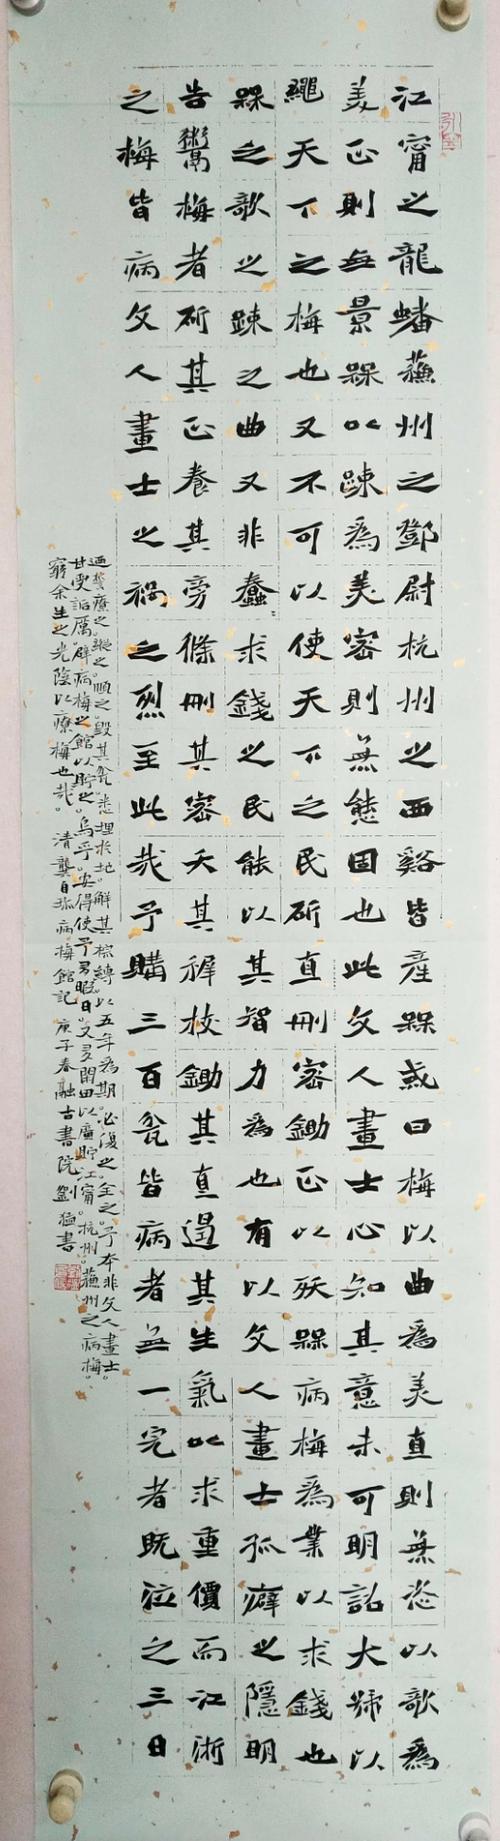 江甯之龍蟠蘇州之鄧尉杭州之西谿皆產槑或曰梅以曲為美直則無姿以欹為
美正則無景槑以疎為美密則無態固也此文人畫士心知其意未可明詔大號以
繩天下之梅也又不可以使天下之民斫直刪密鋤正以殀槑病梅為業以求錢也
槑之欹之疎之曲又非蠢〻求錢之民能以其智力為也有以文人畫士孤癖之隱明
告鬻梅者斫其正養其旁條刪其密夭其穉枝鋤其直遏其生氣以求重價而江浙
之梅皆病文人畫士之禍之烈至此哉予購三百盆皆病者無一完者既泣之三日
迺誓療之。縱之。順之。毀其盆。悉埋於地。解其棕縛。以五年為期。必復之。全之。予本非文人畫士。
甘受詬厲。辟病梅之館以貯之。烏乎。安得使予多暇日。又多閒田以廣貯江甯。杭州。蘇州之病梅。
窮余生之光陰以療梅也哉。清龔自珍病梅館記 庚子春融古書院劉猛書